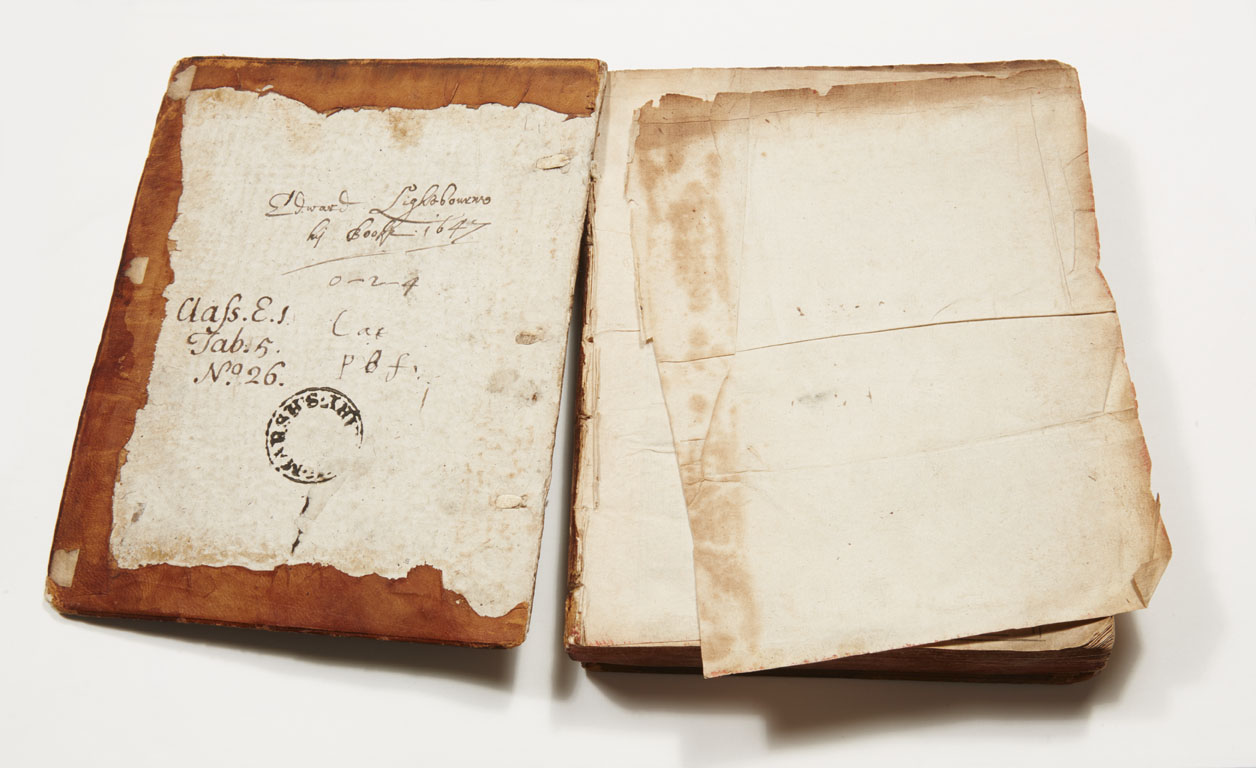 Edward Lightbourne
his Booke 1647
0-2-4
Class. E. 1.
Tab. 5.
N.º 26.
Cat
p B f.
MARSH'S. LIB